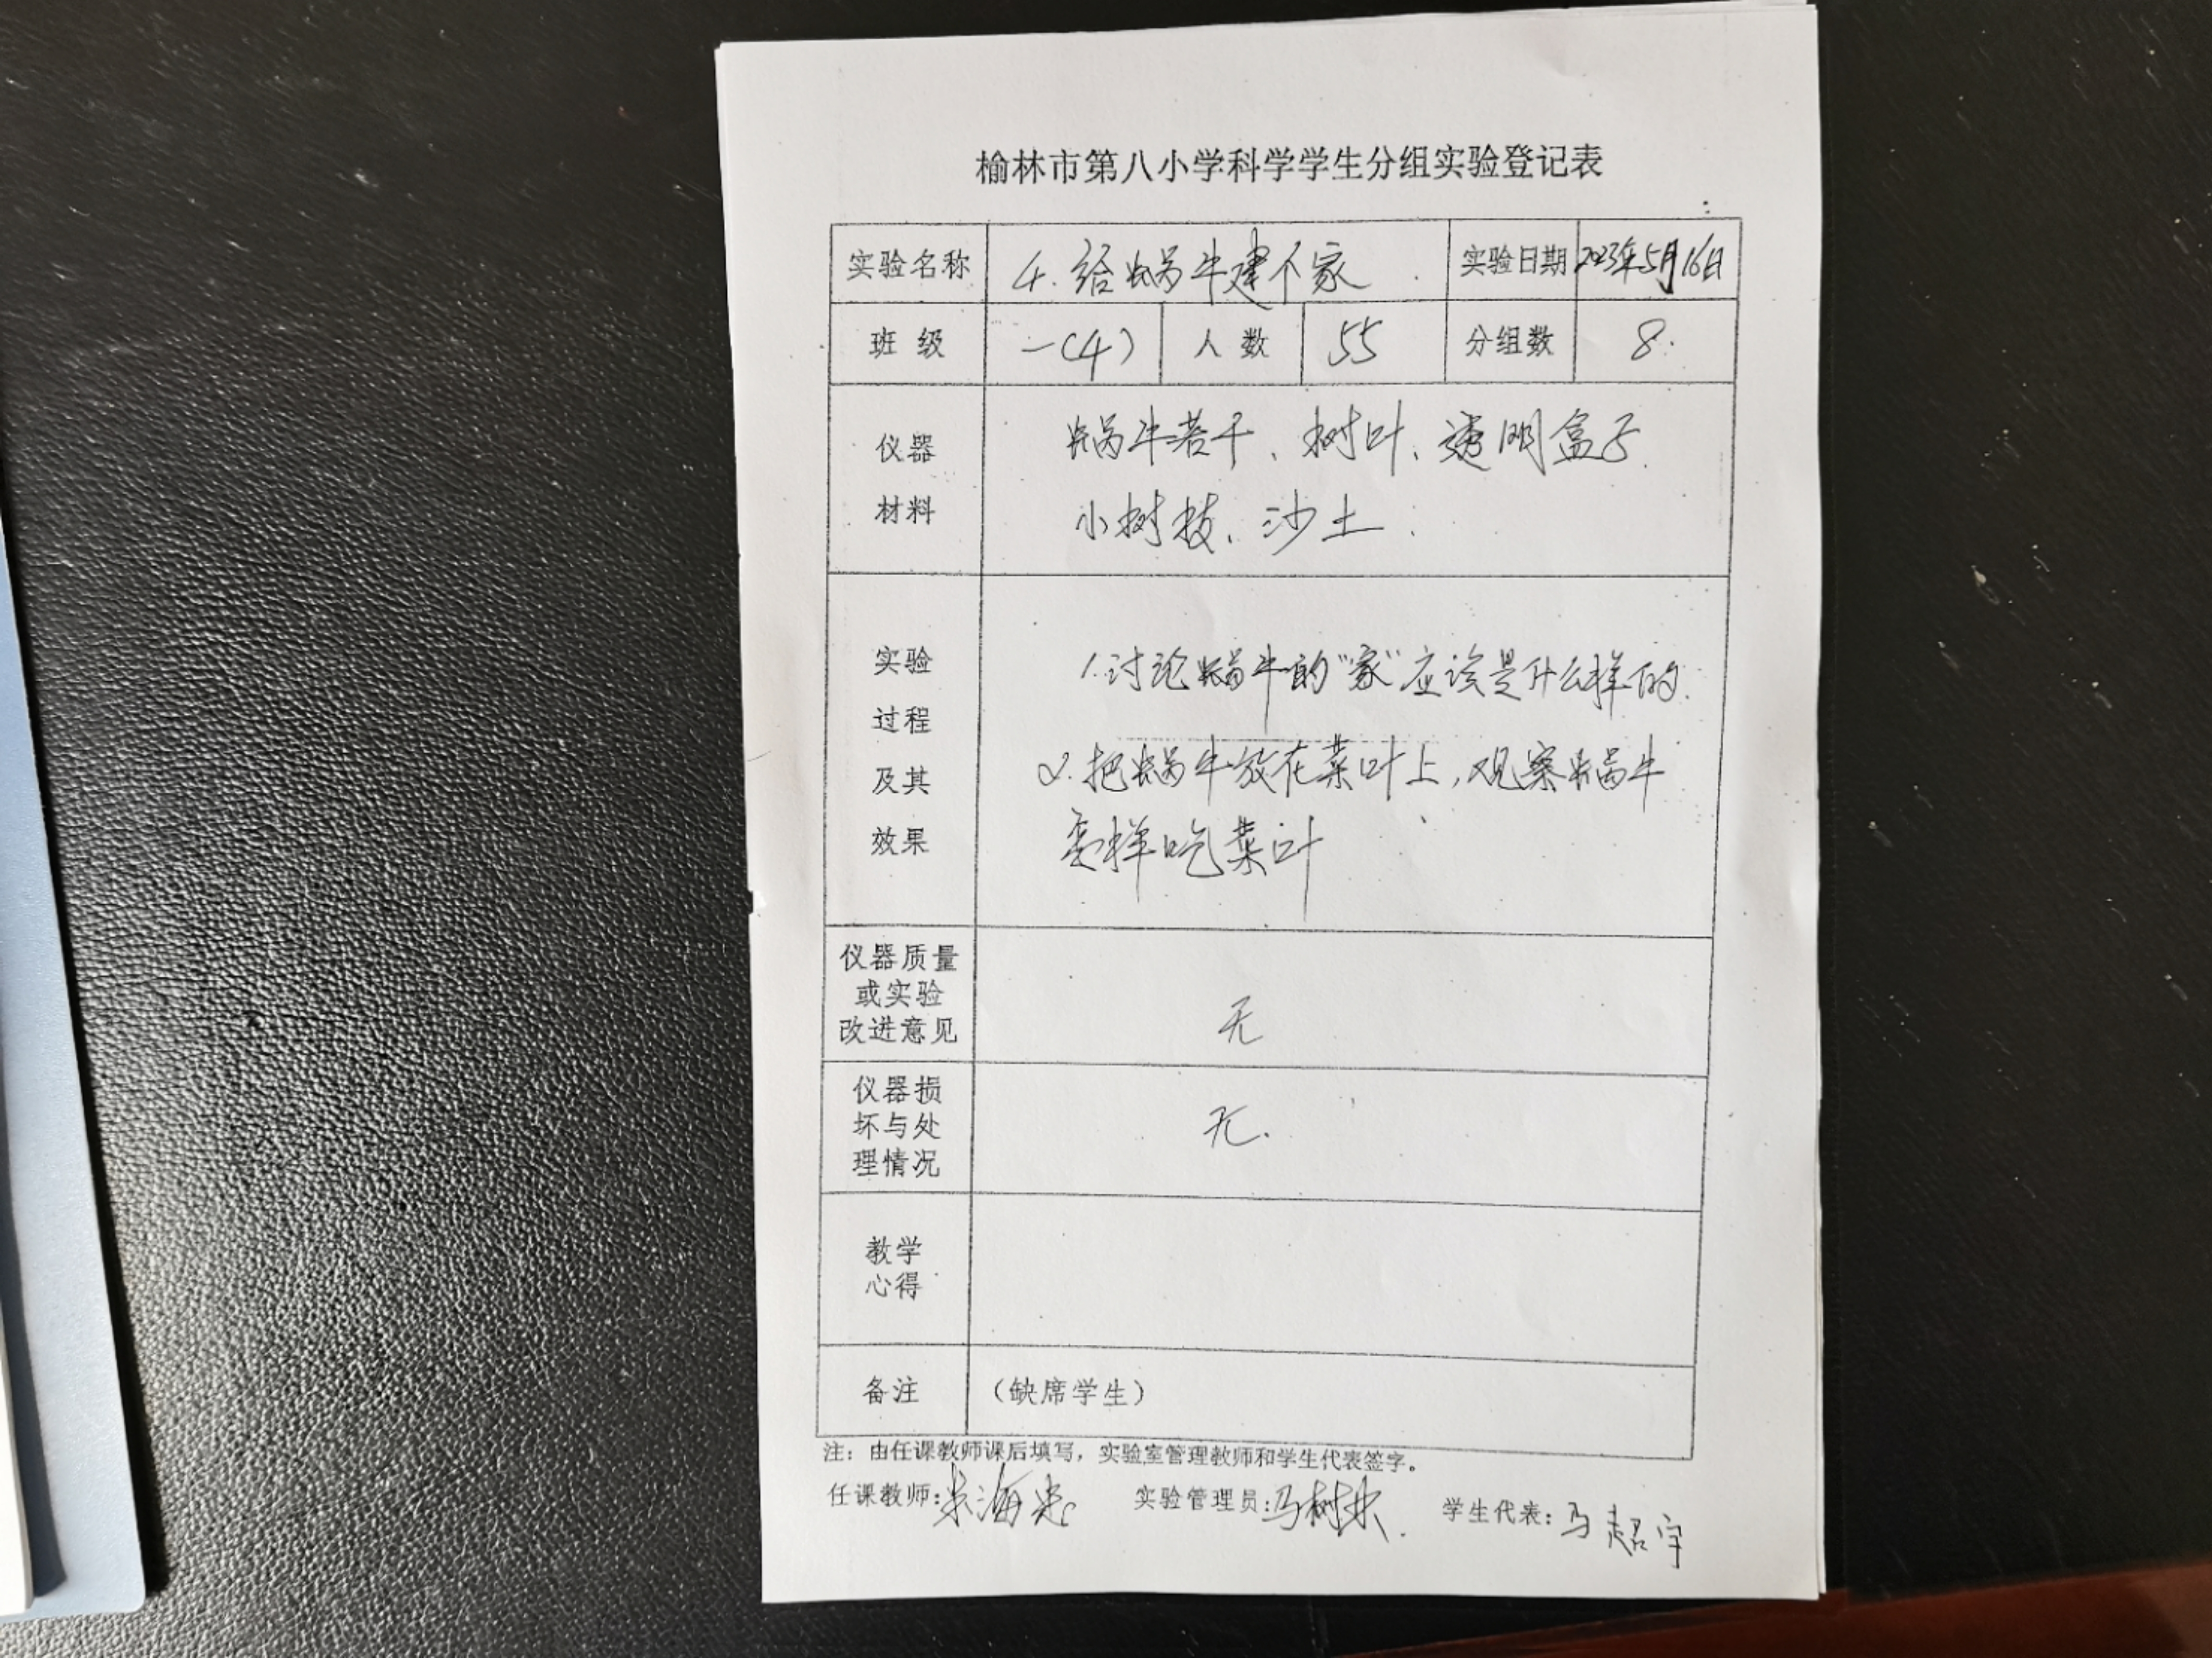 榆林市第八小学科学学生分组实验登记表
实验名称 4.给蜗牛建个家 实验日期 2023年5月16日
班级 一(4) 人数 55 分组数 8.
仪器
材料
蜗牛若干、树叶、透明盒子、
小树枝、沙土.
实验
过程
及其
效果
1.讨论蜗牛的“家”应该是什么样的.
2.把蜗牛放在菜叶上,观察蜗牛
怎样吃菜叶
仪器质量
或实验
改进意见
无
仪器损
坏与处
理情况
无.
教学
心得
备注 (缺席学生)
注：由任课教师课后填写，实验室管理教师和学生代表签字。
任课教师: 实验管理员: 马树 学生代表: 马超宇